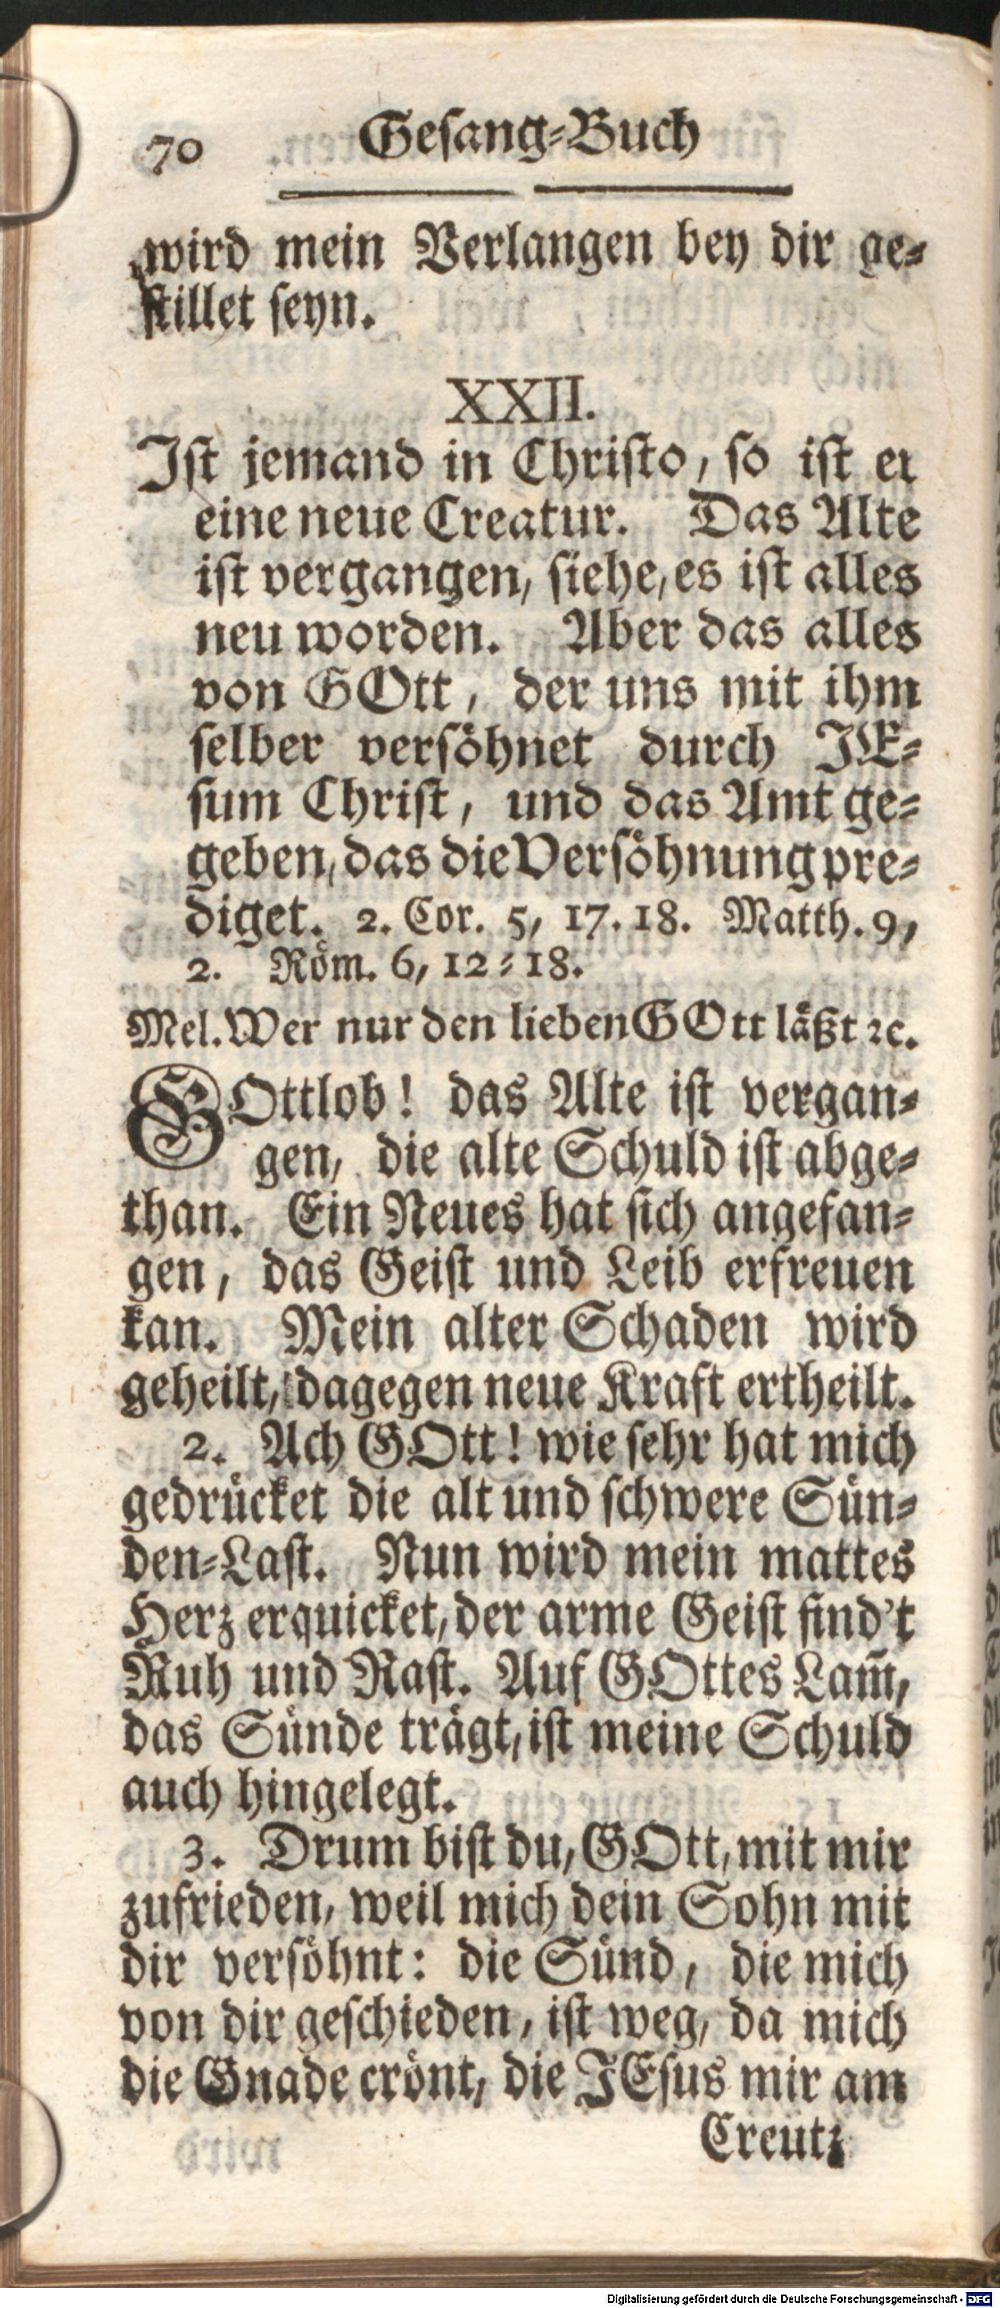 70 Gesang-Buch
wird mein Verlangen bey dir ge-
stillet seyn.
XXII.
Ist jemand in Christo, so ist er
eine neue Creatur. Das Alte
ist vergangen, siehe, es ist alles
neu worden. Aber das alles
von GOtt, der uns mit ihm
selber versöhnet durch JE-
sum Christ, und das Amt ge-
geben, das die Versöhnung pre-
diget. 2. Cor. 5, 17. 18. Matth. 9,
2. Röm. 6, 12-18.
Mel. Wer nur den lieben GOtt läßt ꝛc.
GOttlob! das Alte ist vergan-
gen, die alte Schuld ist abge-
than. Ein Neues hat sich angefan-
gen, das Geist und Leib erfreuen
kan. Mein alter Schaden wird
geheilt, dagegen neue Kraft ertheilt.
2. Ach GOtt! wie sehr hat mich
gedrücket die alt und schwere Sün-
den-Last. Nun wird mein mattes
Herz erquicket, der arme Geist find't
Ruh und Rast. Auf GOttes Lam̃,
das Sünde trägt, ist meine Schuld
auch hingelegt.
3. Drum bist du, GOtt, mit mir
zufrieden, weil mich dein Sohn mit
dir versöhnt: die Sünd, die mich
von dir geschieden, ist weg, da mich
die Gnade crönt, die JEsus mir am
Creutz
Digitalisierung gefördert durch die Deutsche Forschungsgemeinschaft - DFG